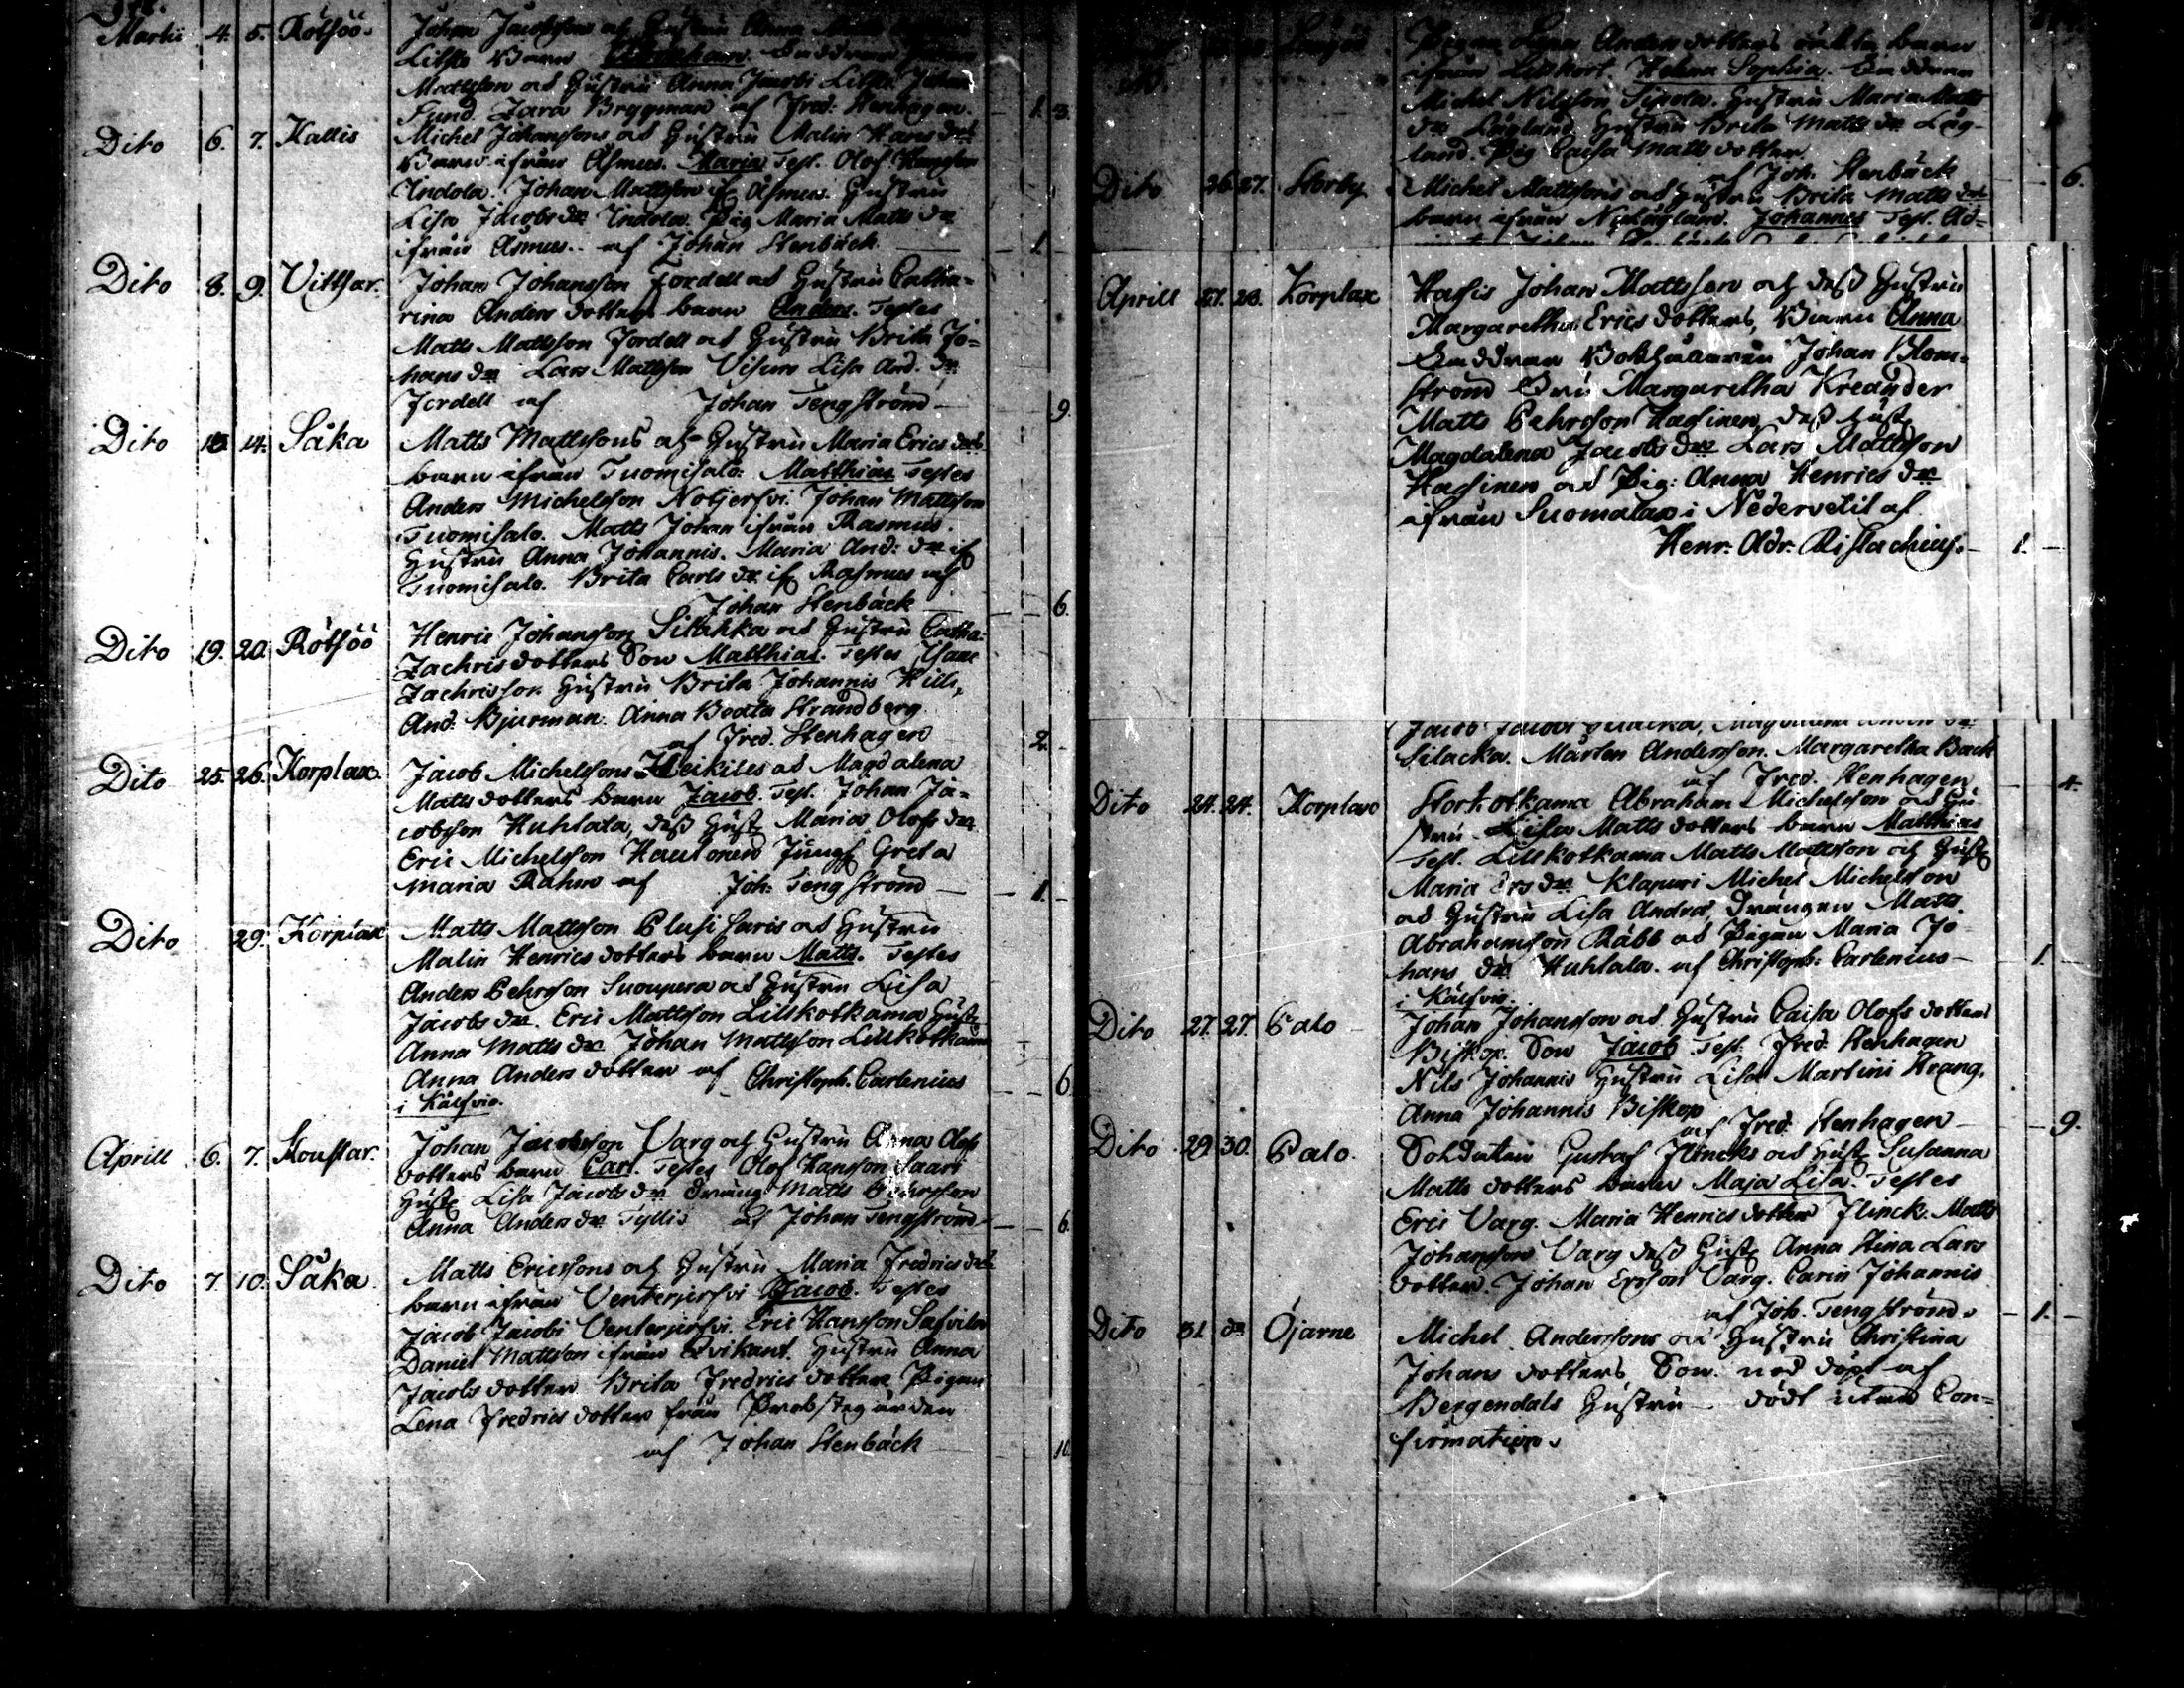 Martii 4. 5. Rötsöö. Johan Jacobsons och Hustru Anna
Lillsto Barn Faddrar Johan
Mattsson och Hustru Anna Jacobi Lillsto Johan
Sund. Zara Brygman af Fred. Stenhagen. 1. 3.
Dito 6. 7. Kallis Michel Johanssons och Hustru Malin Hans dotts
Barn ifrån Åsmus. Maria Test. Olof Hansson
Indola. Johan Mattsson if. Åsmus. Hustru
Lisa Jacobs dr Indola. Pig. Maria Matts dr
ifrån Åsmus. af Johan Stenbäck 1.
Dito 8. 9. Vittsar. Johan Johansson Jordell och Hustru Catha=
rina Anders dotters barn Anders. Testes
Matts Mattsson Jordell och Hustru Brita Jo=
hans dr Lars Mattsson Visuri Lisa And. dr
Jordell af Johan Tengström 9.
Dito 13 14. Såka Matts Mattssons och Hustru Maria Erics dotts
barn ifrån Tuomisalo. Matthias Testes
Anders Michelsson Notjersvi. Johan Mattsson
Tuomisalo. Matts Johan ifrån Rasmus.
Hustru Anna Johannis. Maria And: dr if.
Tuomisalo. Brita Carls dr if. Rasmus af
Johan Stenbäck 6.
Dito 19. 20. Rötsöö Henric Johansson Silahka och Hustru Catha:
Zachris dotters Son Matthias. Testes Isaac
Zachrisson. Hustru Brita Johannis Hill.
And: Bjurman. Anna Beata Strandberg.
af Fred. Stenhagen 2.
Dito 25. 26. Korplax. Jacob Michelssons Heikiles och Magdalena
Matts dotters barn Jacob. Test. Johan Ja=
cobsson Huhtala, dess Hust. Maria Olofs dr
Eric Michelsson Hautonen Jungf. Greta
Maria Rahm af Joh: Tengström 1.
Dito 29. Korplax Matts Mattsson Clusi Saris och Hustru
Malin Henrics dotters barn Matts. Testes
Anders Pehrsson Suoupera och Hustru Lisa
Jacobs dr. Eric Mattsson Lillkotkama Hust.
Anna Matts dr Johan Mattsson Lillkotkama
Anna Anders dotter af Christoph. Cartenius 6
i Kälfvio.
Aprill 6. 7. Koustar. Johan Jacobsson Varg och Hustru Anna Olofs
dotters barn Carl. Testes Olof Hansson Saari
Hust. Lisa Jacobs dr Dräng Matts Pehrsson
Anna Anders dr Tyllis af Johan Tengström 6.
Dito 7. 10. Såka Matts Ericssons och Hustru Maria Fredrics dotts
barn ifrån Venterjersvi Jacob. Testes
Jacob Jacobi Venterjersvi. Eric Hansson
Daniel Mattsson ifrån Qvikant. Hustru Anna
Jacobs dotter Brita Fredrics dotter Pigan
Lena Fredrics dotter från Probstegården
af Johan Stenbäck 10.
Pigan Lena Anders dotters oäkta barn
ifrån Lillkort. Helena Sophia. Faddrar
Michel Nilsson Sipola. Hustru Maria Matts
dr Lågland. Hustru Brita Matts dr Låg-
land. Pig. Caisa Matts dotter
af Joh. Stenbäck
Dito 26. 27. Storby Michel Mattssons och Hustru Brita Matts dotts 6.
barn ifrån Nylågland. Johannes Test. Ad=
Aprill 27. 28. Korplax Hassis Johan Mattsson och dess Hustru
Margaretha Erics dotters, Barn Anna
Faddrar Bokhållaren Johan Blom-
ström Fru Margaretha Kreander
Matts Pehrsson Hassinen dess Hust.
Magdalena Jacobs dr Lars Mattsson
Hassinen och Pig: Anna Henrics dr
ifrån Suomalax i Nedervetil af
Henr: Adr. Ristachius. 1.
Jacob Jacobs Silacka,
Silacka. Mårten Andersson. Margaretha Back
af Fred. Stenhagen 4.
Dito 24. 24. Korplax Storkotkama Abraham Michelsson och Hu
stru Lisa Matts dotters barn Matthias
Test. Lillkotkama Matts Mattsson och Hust.
Maria Ers dr Klapuri Michel Michelsson
och Hustru Lisa Andrae, Drängen Matts
Abrahamsson Räbb och Pigan Maria Jo
hans dr Huhtala. af Christoph: Cartenius 1.
i Kälfvio.
Dito 27. 27. Palo Johan Johansson och Hustru Caisa Olofs dotters
Biskop. Son Jacob. Test. Fred. Stenhagen
Nils Johannis Hustru Lisa Martini Krang.
Anna Johannis Biskop
af Fred. Stenhagen 9.
Dito 29. 30. Palo. Soldaten Gustaf Flincks och Hust. Susanna
Matts dotters barn Maja Lisa. Testes
Eric Varg. Maria Henrics dotter Flinck. Matts
Johansson Varg dess Hust. Anna Stina Lars
dotter. Johan Ersson Varg. Carin Johannis
af Joh. Tengström. 1.
Dito 31 do Öjarne Michel Anderssons och Hustru Christina
Johans dotters, Son. nöd döpt af
Bergendals Hustru - dödt Con=
firmation.